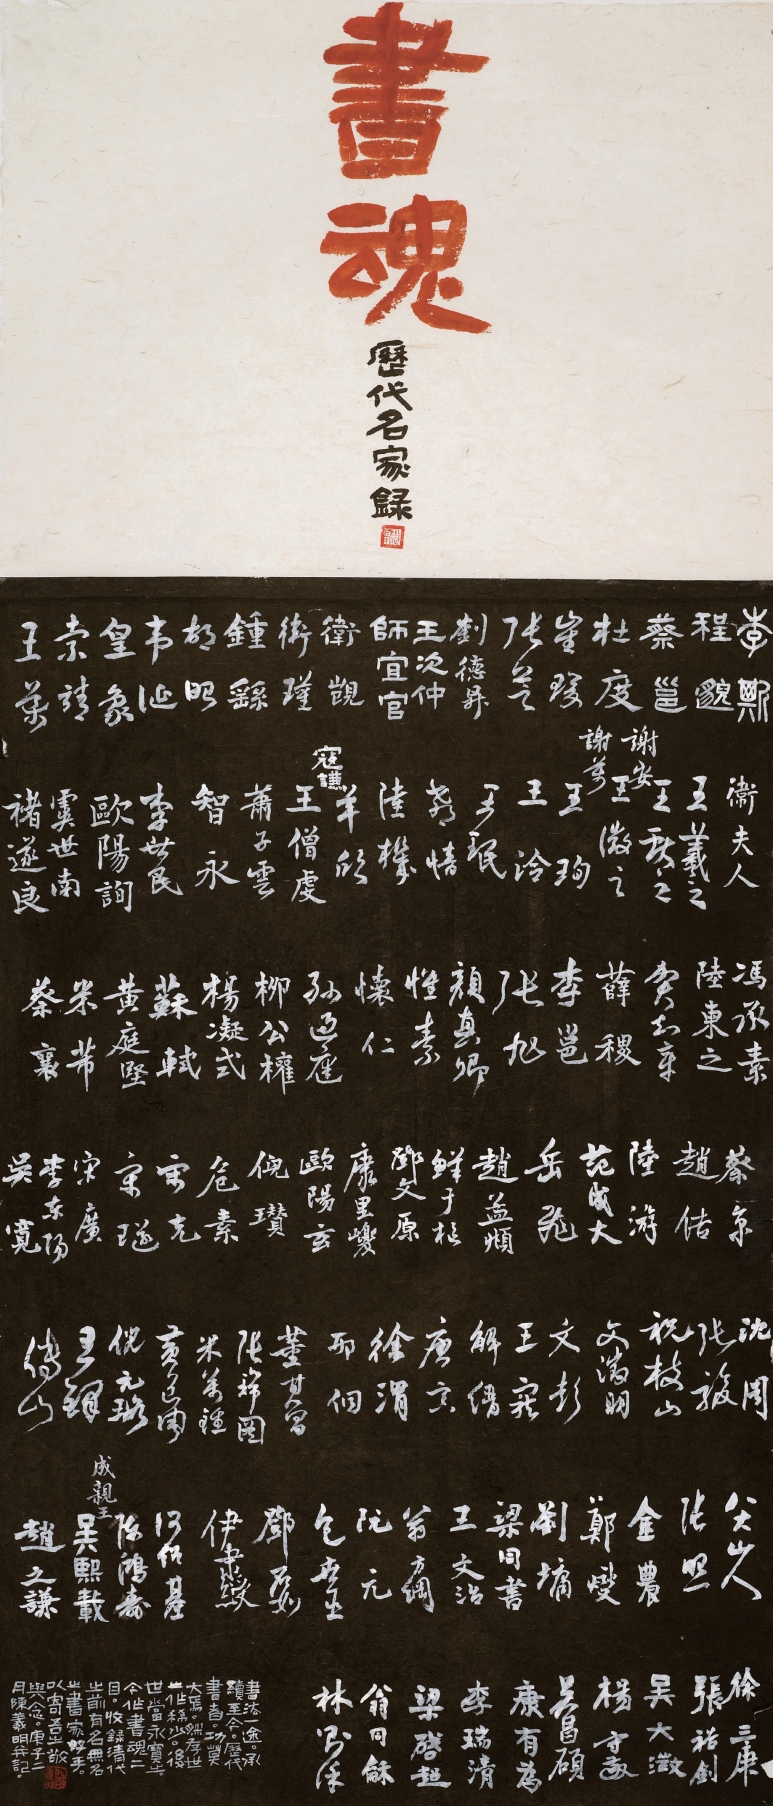 書魂
歷代名家録
李斯
程邈
蔡邕
杜度
崔瑗
张芝
劉德昇
王次仲
師宜官
衛覬
衛瓘
鍾繇
胡昭
韦誕
皇象
索靖
王廙
衛夫人
王羲之
王献之
謝安
王徽之
謝萬
王珣
王洽
王珉
郗愔
陸機
羊欣
寇謙
王僧虔
蕭子雲
智永
李世民
歐陽詢
虞世南
褚遂良
馮承素
陸東之
賀知章
薛稷
李邕
张旭
顏真卿
懷素
懷仁
孙過庭
柳公權
楊凝式
蘇軾
黃庭堅
米芾
蔡襄
蔡京
趙佶
陸游
范成大
岳飛
趙孟頫
鮮于樞
鄧文原
康里巎
歐陽玄
倪瓚
危素
宋克
宋璲
宋廣
李东阳
吳寬
沈周
张駿
祝枝山
文徵明
文彭
王寵
解縉
唐寅
徐渭
邢侗
董其昌
张瑞圖
米萬鍾
黃道周
倪元璐
王鐸
傅山
八大山人
张照
金農
鄭燮
劉墉
梁同書
王文治
翁方綱
阮元
包世臣
鄧石如
伊秉綬
何紹基
陈鴻壽
成親王
吳熙載
趙之謙
徐三庚
張裕釗
吳大澂
楊守敬
吳昌碩
康有為
李瑞清
梁啓超
翁同龢
林则徐
書法一途。承
續至今。歷代
書者。功莫
大焉。然存世
之作稀少。後
世當永寶之。
今作書魂二
目。收録清代
之前有名無名
之書家妙手。
以寄吾之敬
與念。庚子二
月陳義明并記。